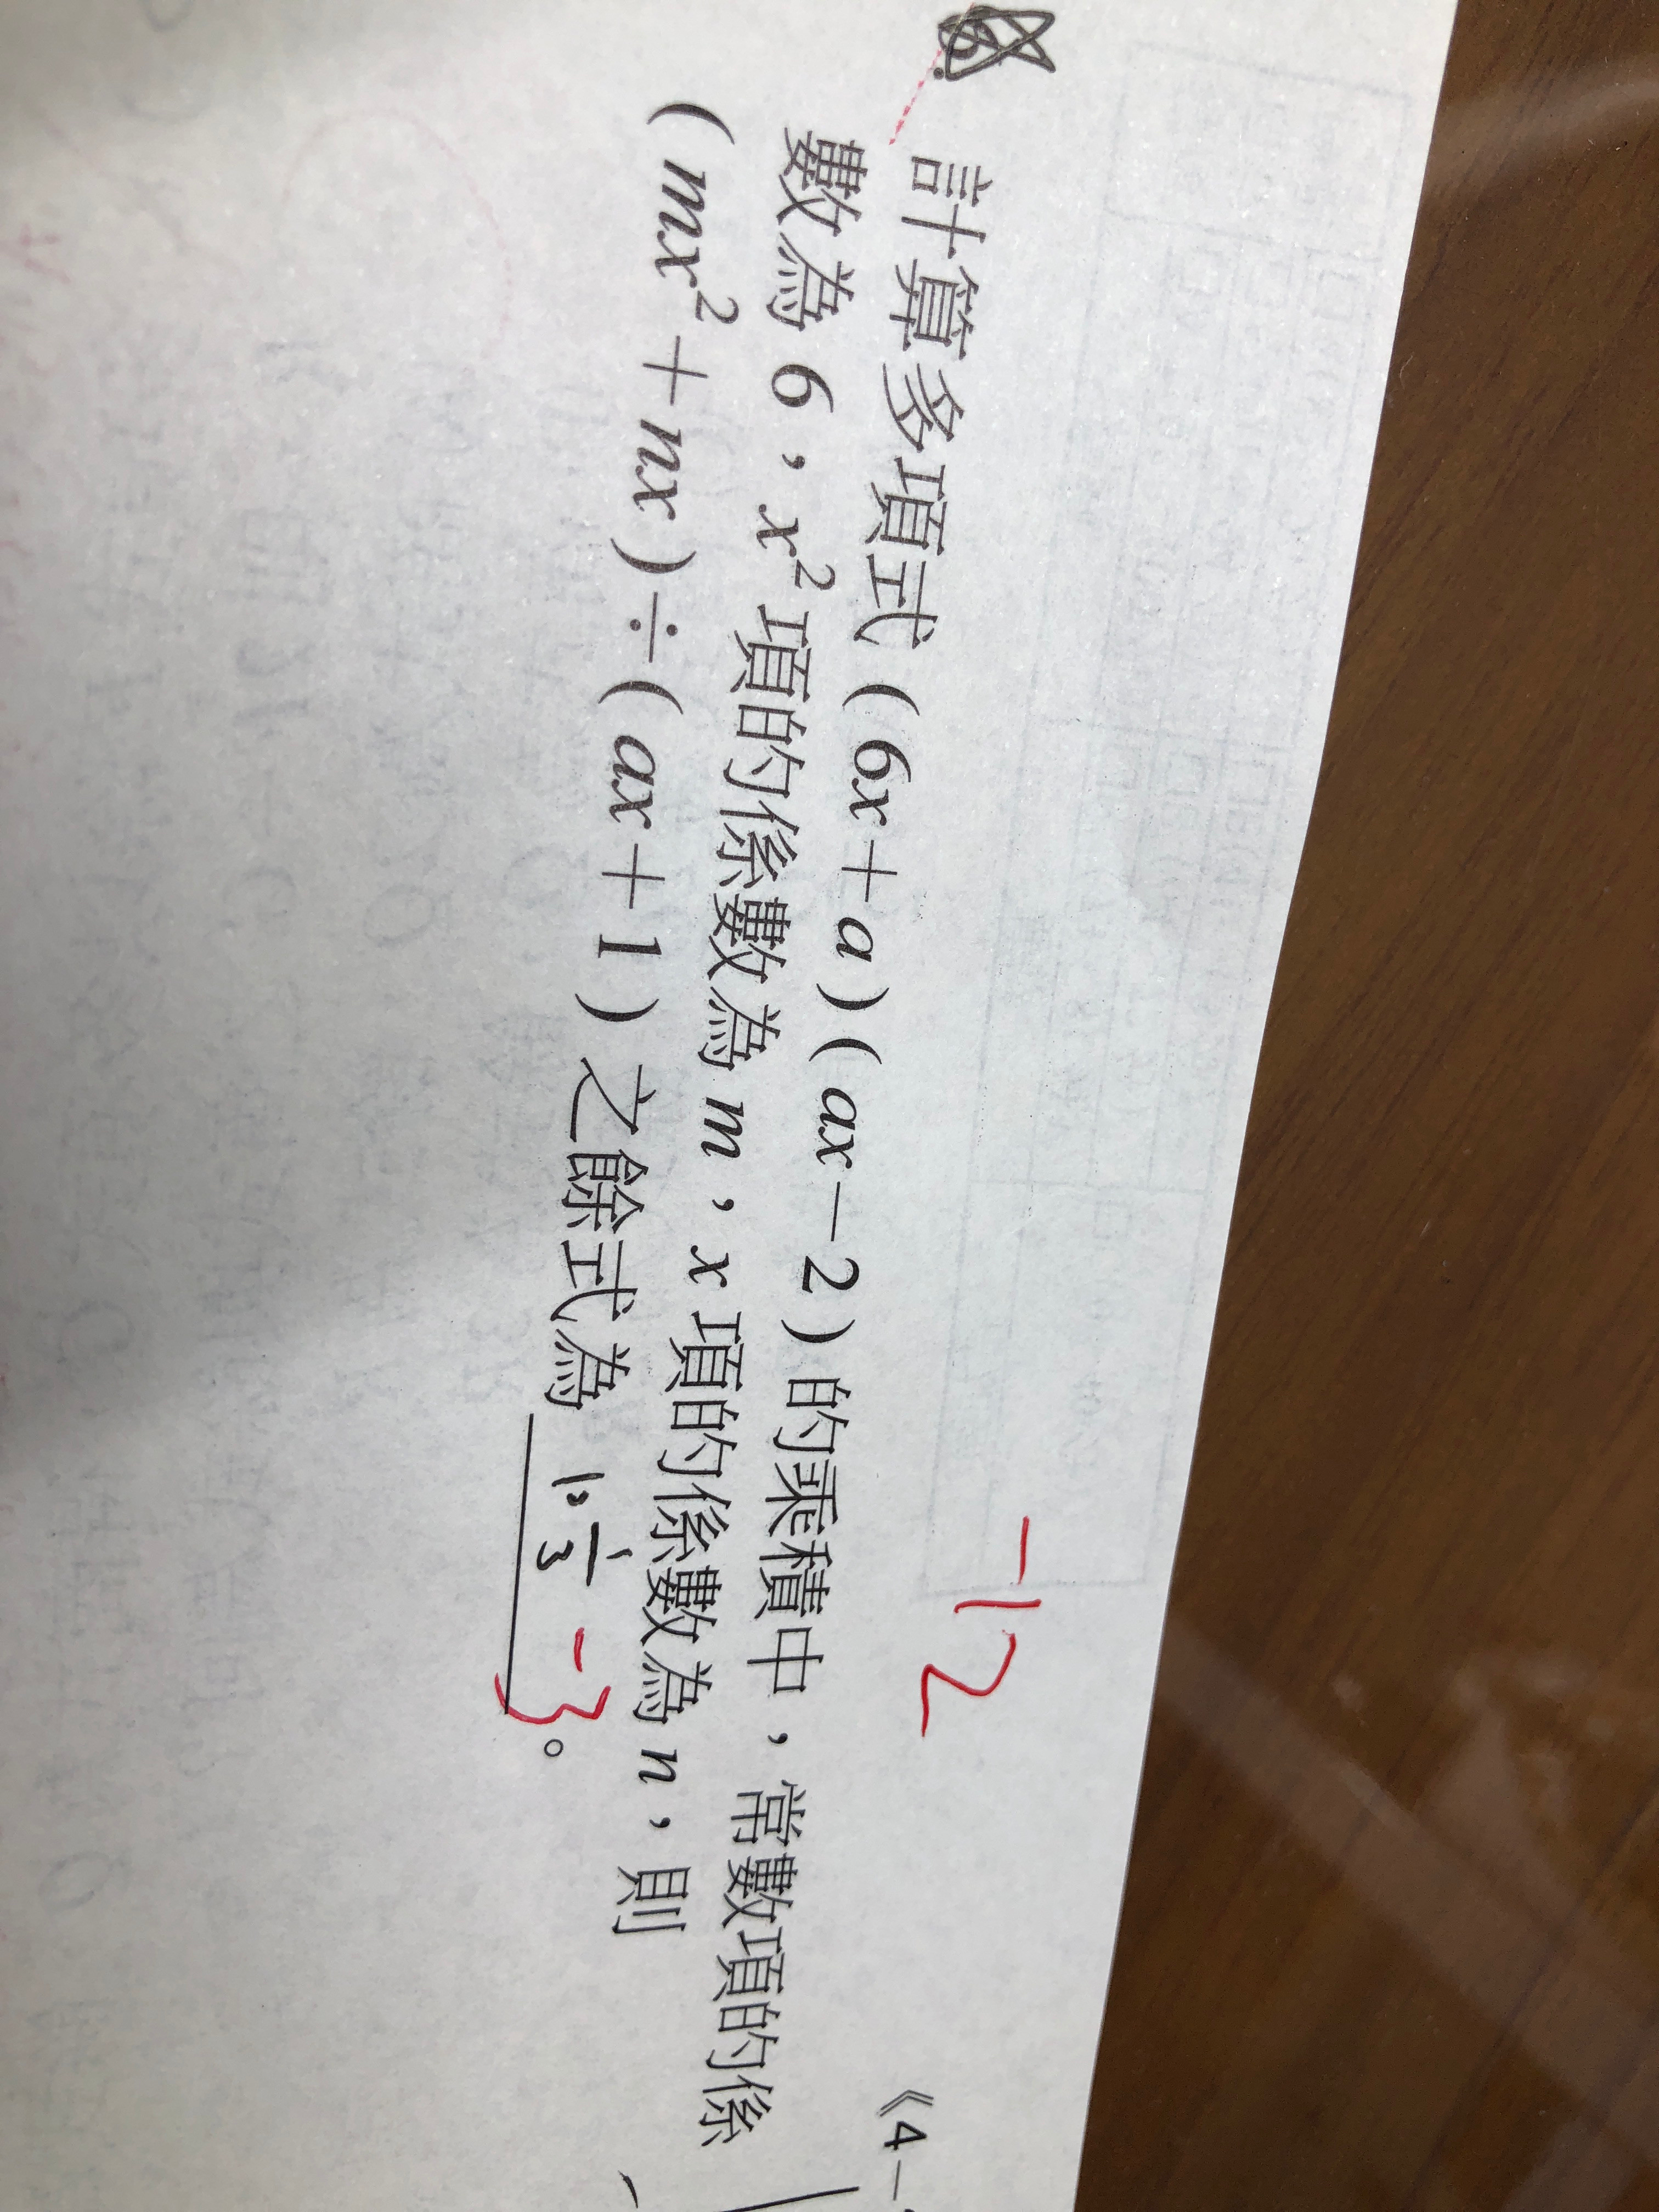 -12
《4-
計算多項式(6x+a)(ax-2)的乘積中,常數項的係
數為6,x²項的係數為m,x項的係數為n,則
(mx²+nx)÷(ax+1)之餘式為 -3 。